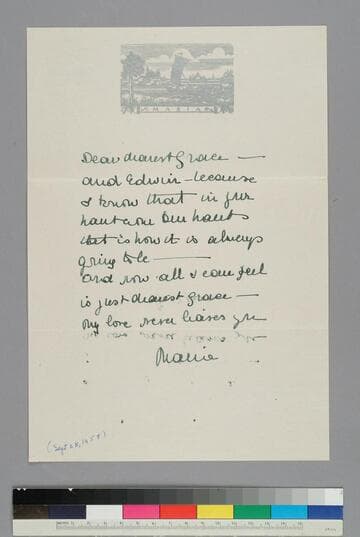 Dear dearest Grace —
and Edwin — because
I know that in your
heart and our hearts
that is how it is always
going to be —
and now all I can feel
is just dearest Grace —
My love never leaves you
Maria
(Sept 28, 1958)